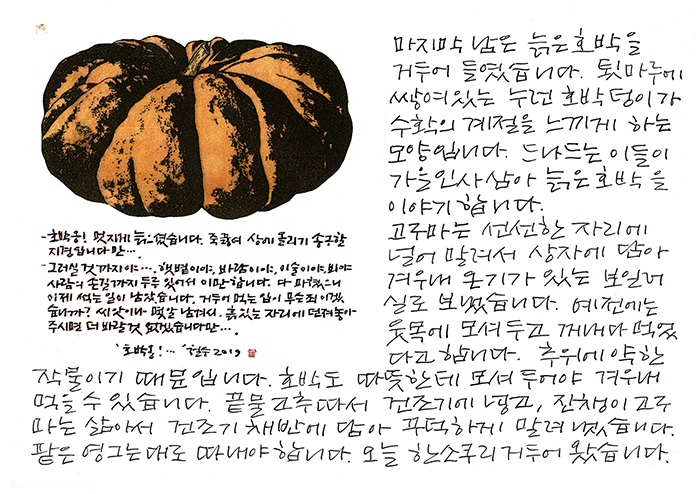 -호박옹! 멋지게 늙으셨습니다. 죽 끓여 상에 올리기 송구할
지경입니다만….
-그러실 것 까지야…. 햇볕이야, 바람이야, 이슬이야, 비야
사람의 손길까지 두루 있어서 이만합니다. 다 파했으니
이제 썩는 일이 남았습니다. 거두어 먹는 입이 무슨 죄이겠
습니까? 씨앗이나 몇알 남겨서, 흙있는 자리에 던져놓아
주시면 더 바랄 것 없겠습니다만….
'호박옹!…' 철수 2019
마지막 남은 늙은호박을
거두어 들였습니다. 툇마루에
쌓여있는 누런 호박덩이가
수확의 계절을 느끼게 하는
모양입니다. 드나드는 이들이
가을인사삼아 늙은호박을
이야기합니다.
고구마는 선선한 자리에
널어 말려서 상자에 담아
겨우내 온기가 있는 보일러
실로 보냈습니다. 예전에는
윗목에 모셔두고 꺼내다 먹었
다고 합니다. 추위에 약한
작물이기 때문입니다. 호박도 따뜻한데 모셔두어야 겨우내
먹을 수 있습니다. 끝물고추따서 건조기에 넣고, 잔챙이고구
마는 삶아서 건조기 채반에 담아 꾸덕하게 말려 냈습니다.
팥은 영그는대로 따내야 합니다. 오늘 한소쿠리 거두어 왔습니다.